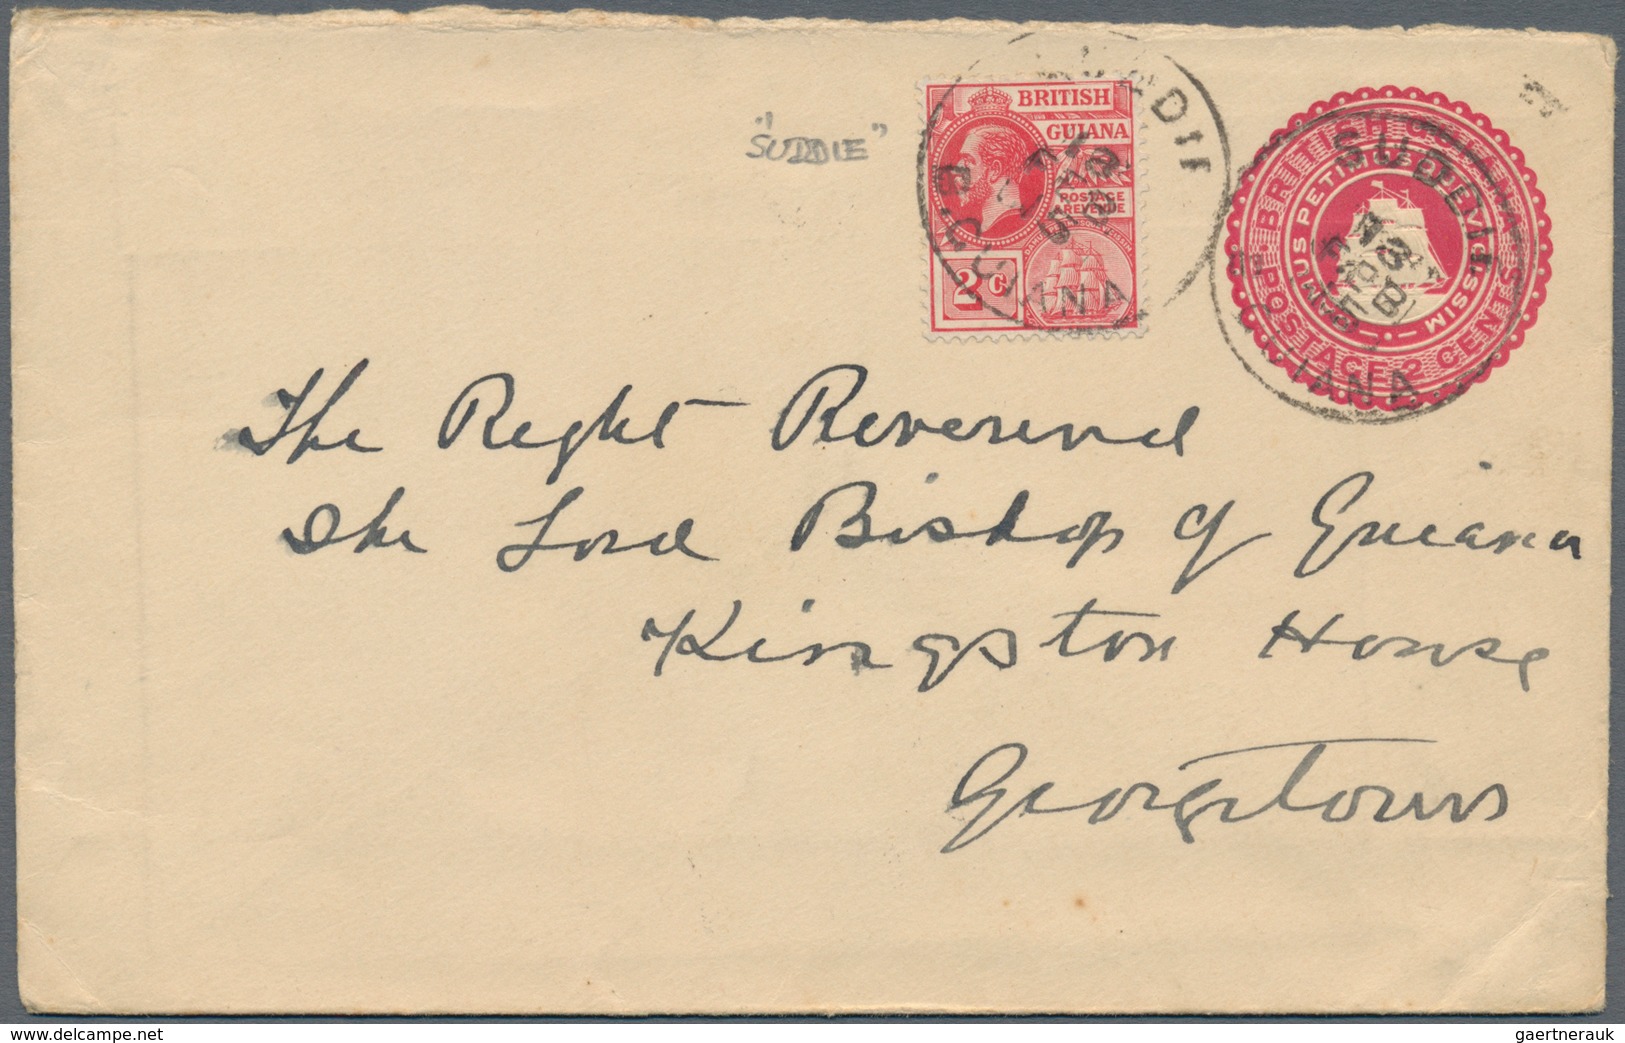 "SUDDIE"
BRITISH
GUIANA
POSTAGE
& REVENUE
2c
SUDDIE
BRITISH GUIANA
POSTAGE 2 CENTS
DAMUS PETIMUSQUE VICISSIM
The Right Reverend
The Lord Bishop of Guiana
Kingston House
Georgetown
www.delcampe.net
gaertnerauk